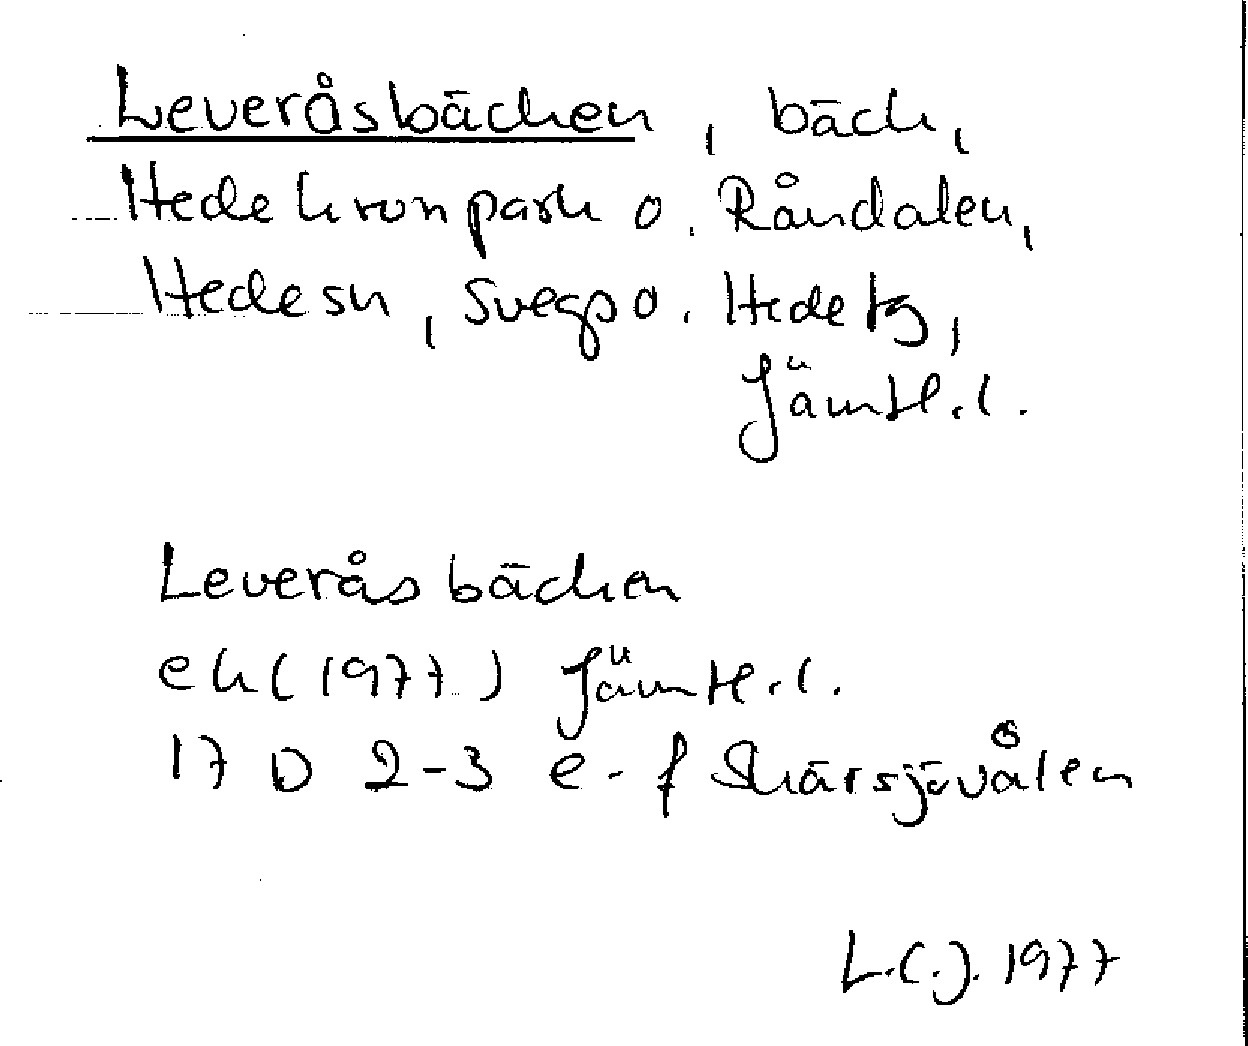 Leveråsbäcken, bäck,
Hede kronpark o. Råndalen,
Hede sn, Svegs po. Hede tg,
Jämtl. l.
Leveråsbäcken
ek (1977) Jämtl. l.
17 D 2-3 e-f Skärsjövålen
L.C.J. 1977